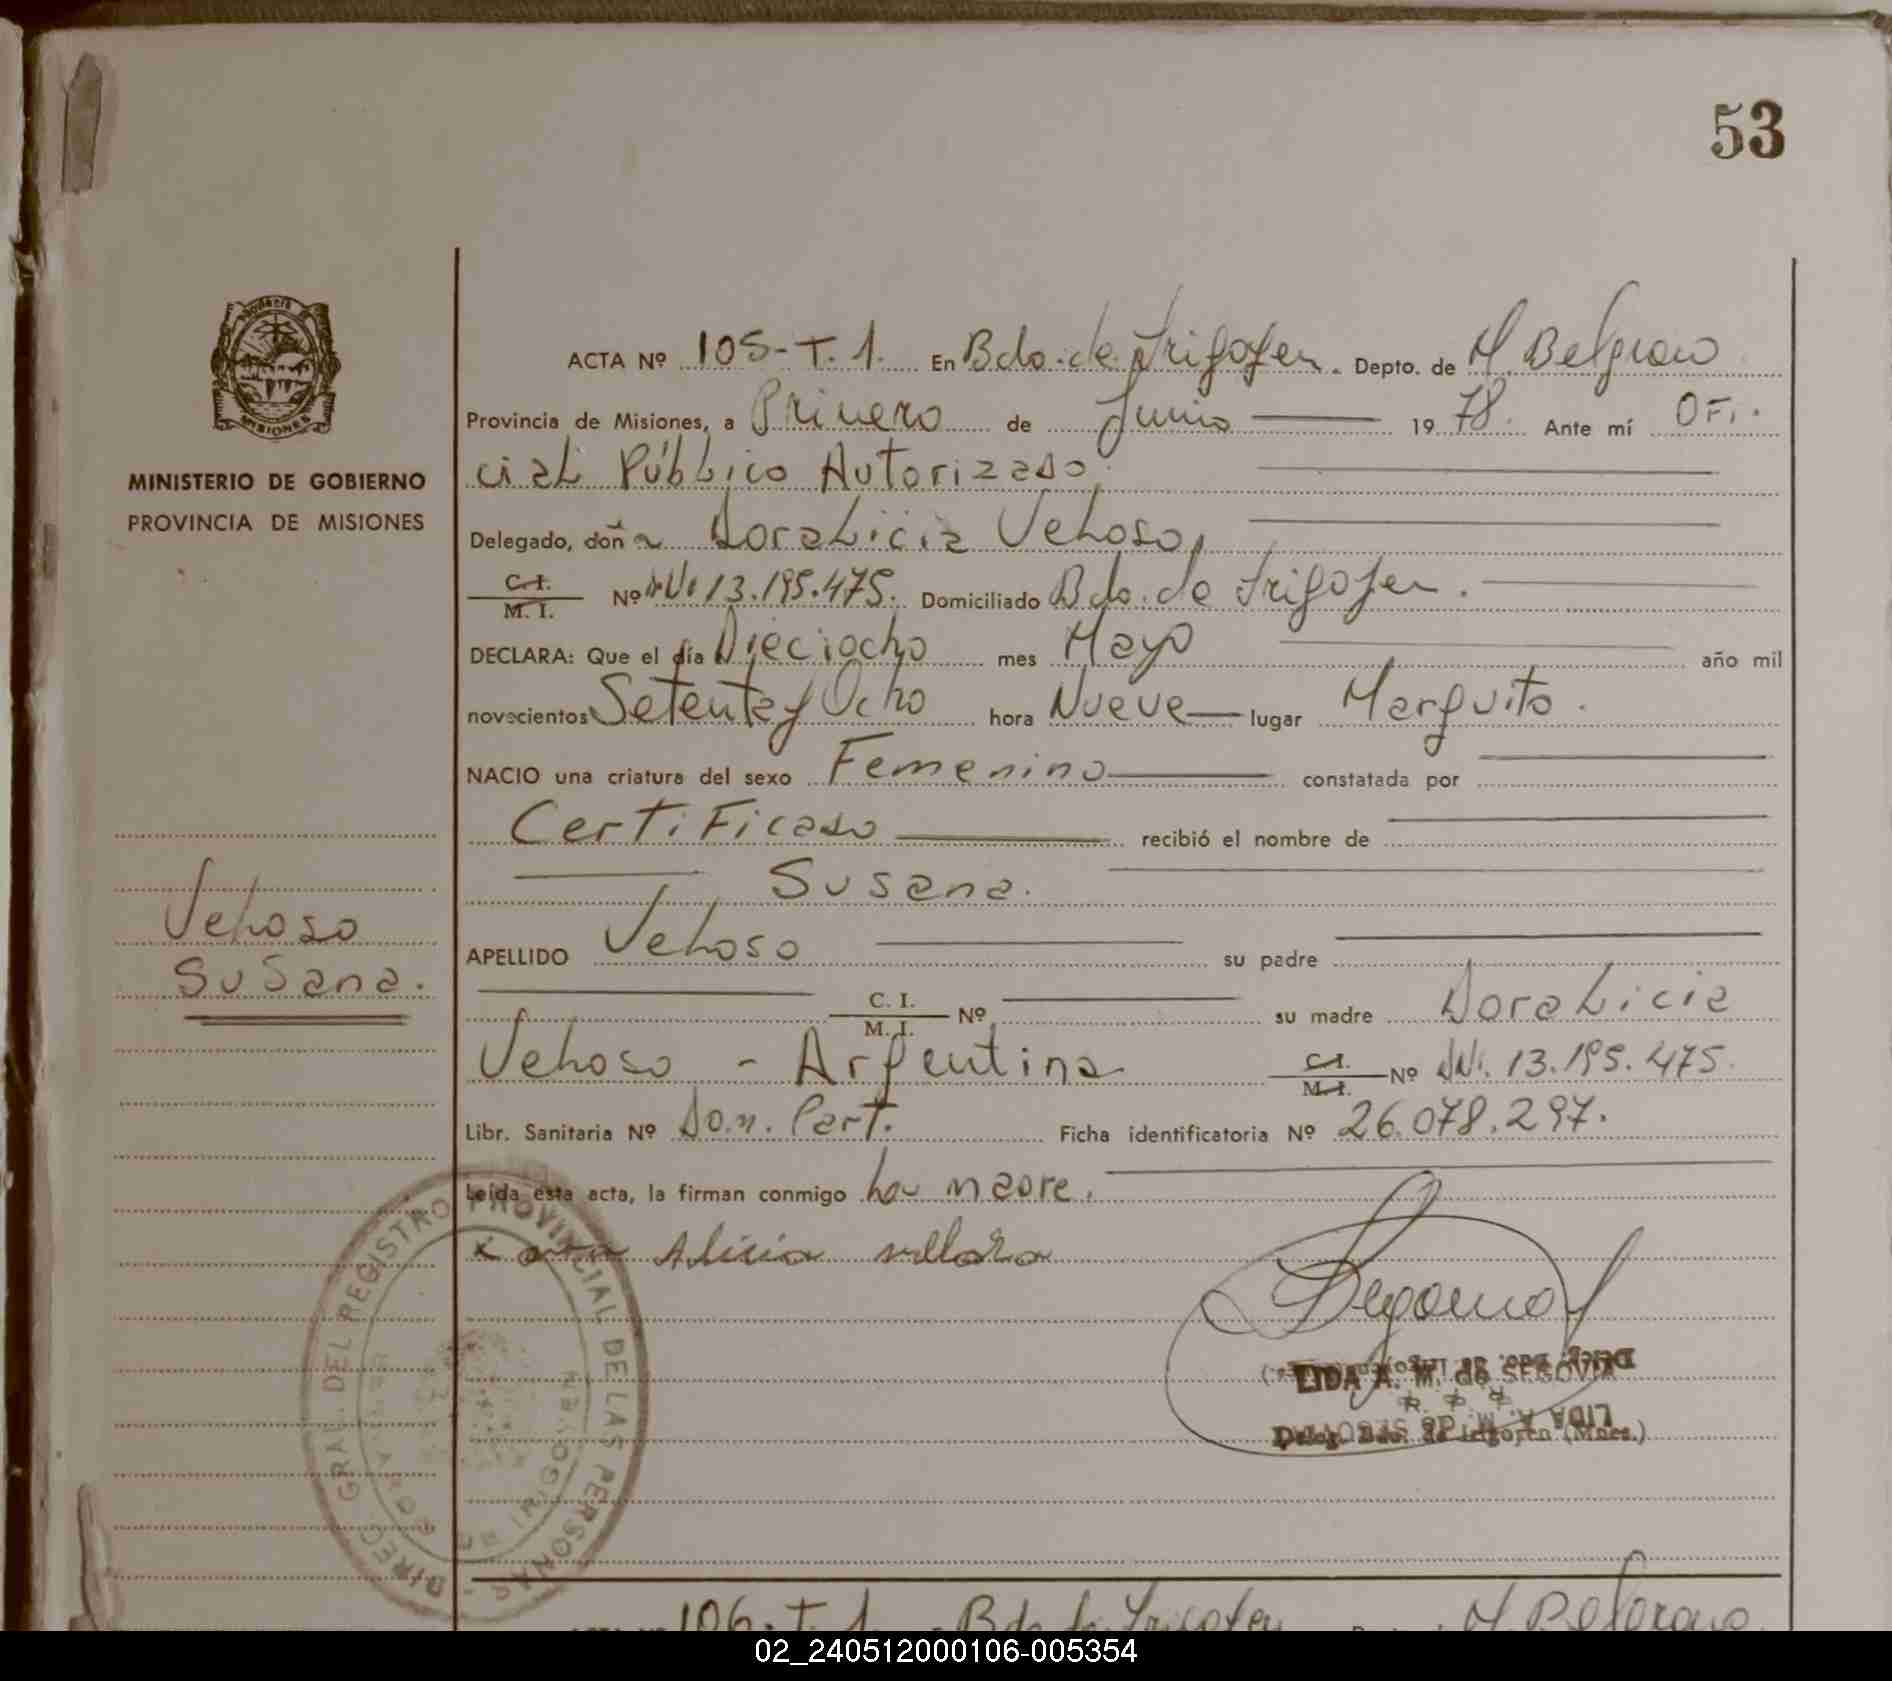 53
ACTA Nº 105-T.1. En Bdo. de Irigoyen. Depto. de M. Belgrano
Provincia de Misiones, a Primero de Junio 1978. Ante mí OFi.
cial Público Autorizado,
Delegado, doña Doralicia Veloso,
C.I. / M.I. Nº DNi 13.195.475. Domiciliado Bdo. de Irigoyen.
DECLARA: Que el día Dieciocho mes Mayo año mil
novecientos Setenta y Ocho hora Nueve lugar Marquito.
NACIO una criatura del sexo Femenino constatada por
Certificado recibió el nombre de
Susana.
APELLIDO Veloso su padre
C. I. / M. I. Nº su madre Doralicia
Veloso - Argentina C.I. / M.I. Nº DNi. 13.195.475.
Libr. Sanitaria Nº Dom. Part. Ficha identificatoria Nº 26.078.297.
Leída esta acta, la firman conmigo la madre.
Alicia velloso
LIDA A. M. de SEGOVIA
Deleg. Bdo. de Irigoyen (Mnes.)
MISIONES
MINISTERIO DE GOBIERNO
PROVINCIA DE MISIONES
Veloso
Susana.
DIREC. GRAL. DEL REGISTRO PROVINCIAL DE LAS PERSONAS
DE IRIGOYEN
106-T.1. Bdo. de Irigoyen M. Belgrano
02_240512000106-005354